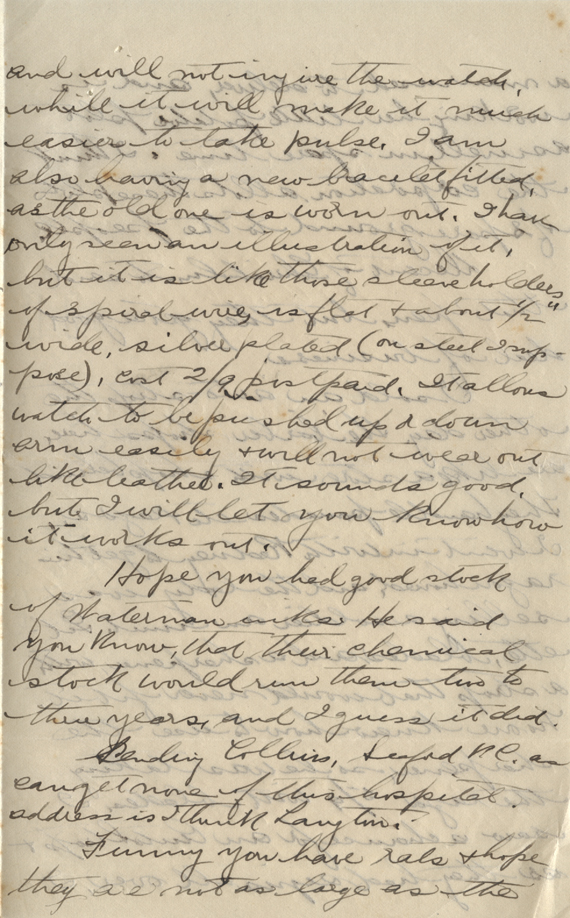 and will not injure the watch,
while it will make it much
easier to take pulse. I am
also having a new bracelet fitted,
as the old one is worn out. I have
only seen an illustration of it,
but it is like those sleeve holders
of spiral wire, is flat & about 1/2"
wide, silver plated (on steel I sup-
pose), cost 2/9 postpaid. It allows
watch to be pushed up & down
arm easily & will not wear out
like leather. It sounds good,
but I will let you know how
it works out.
Hope you had good stock
of Waterman inks. He said
you know, that their chemical
stock would run them two to
three years, and I guess it did.
Sending Collins, P.C. as
can get none of this hospital.
address is I think Langton.
Funny you have rats & hope
they are not as large as the